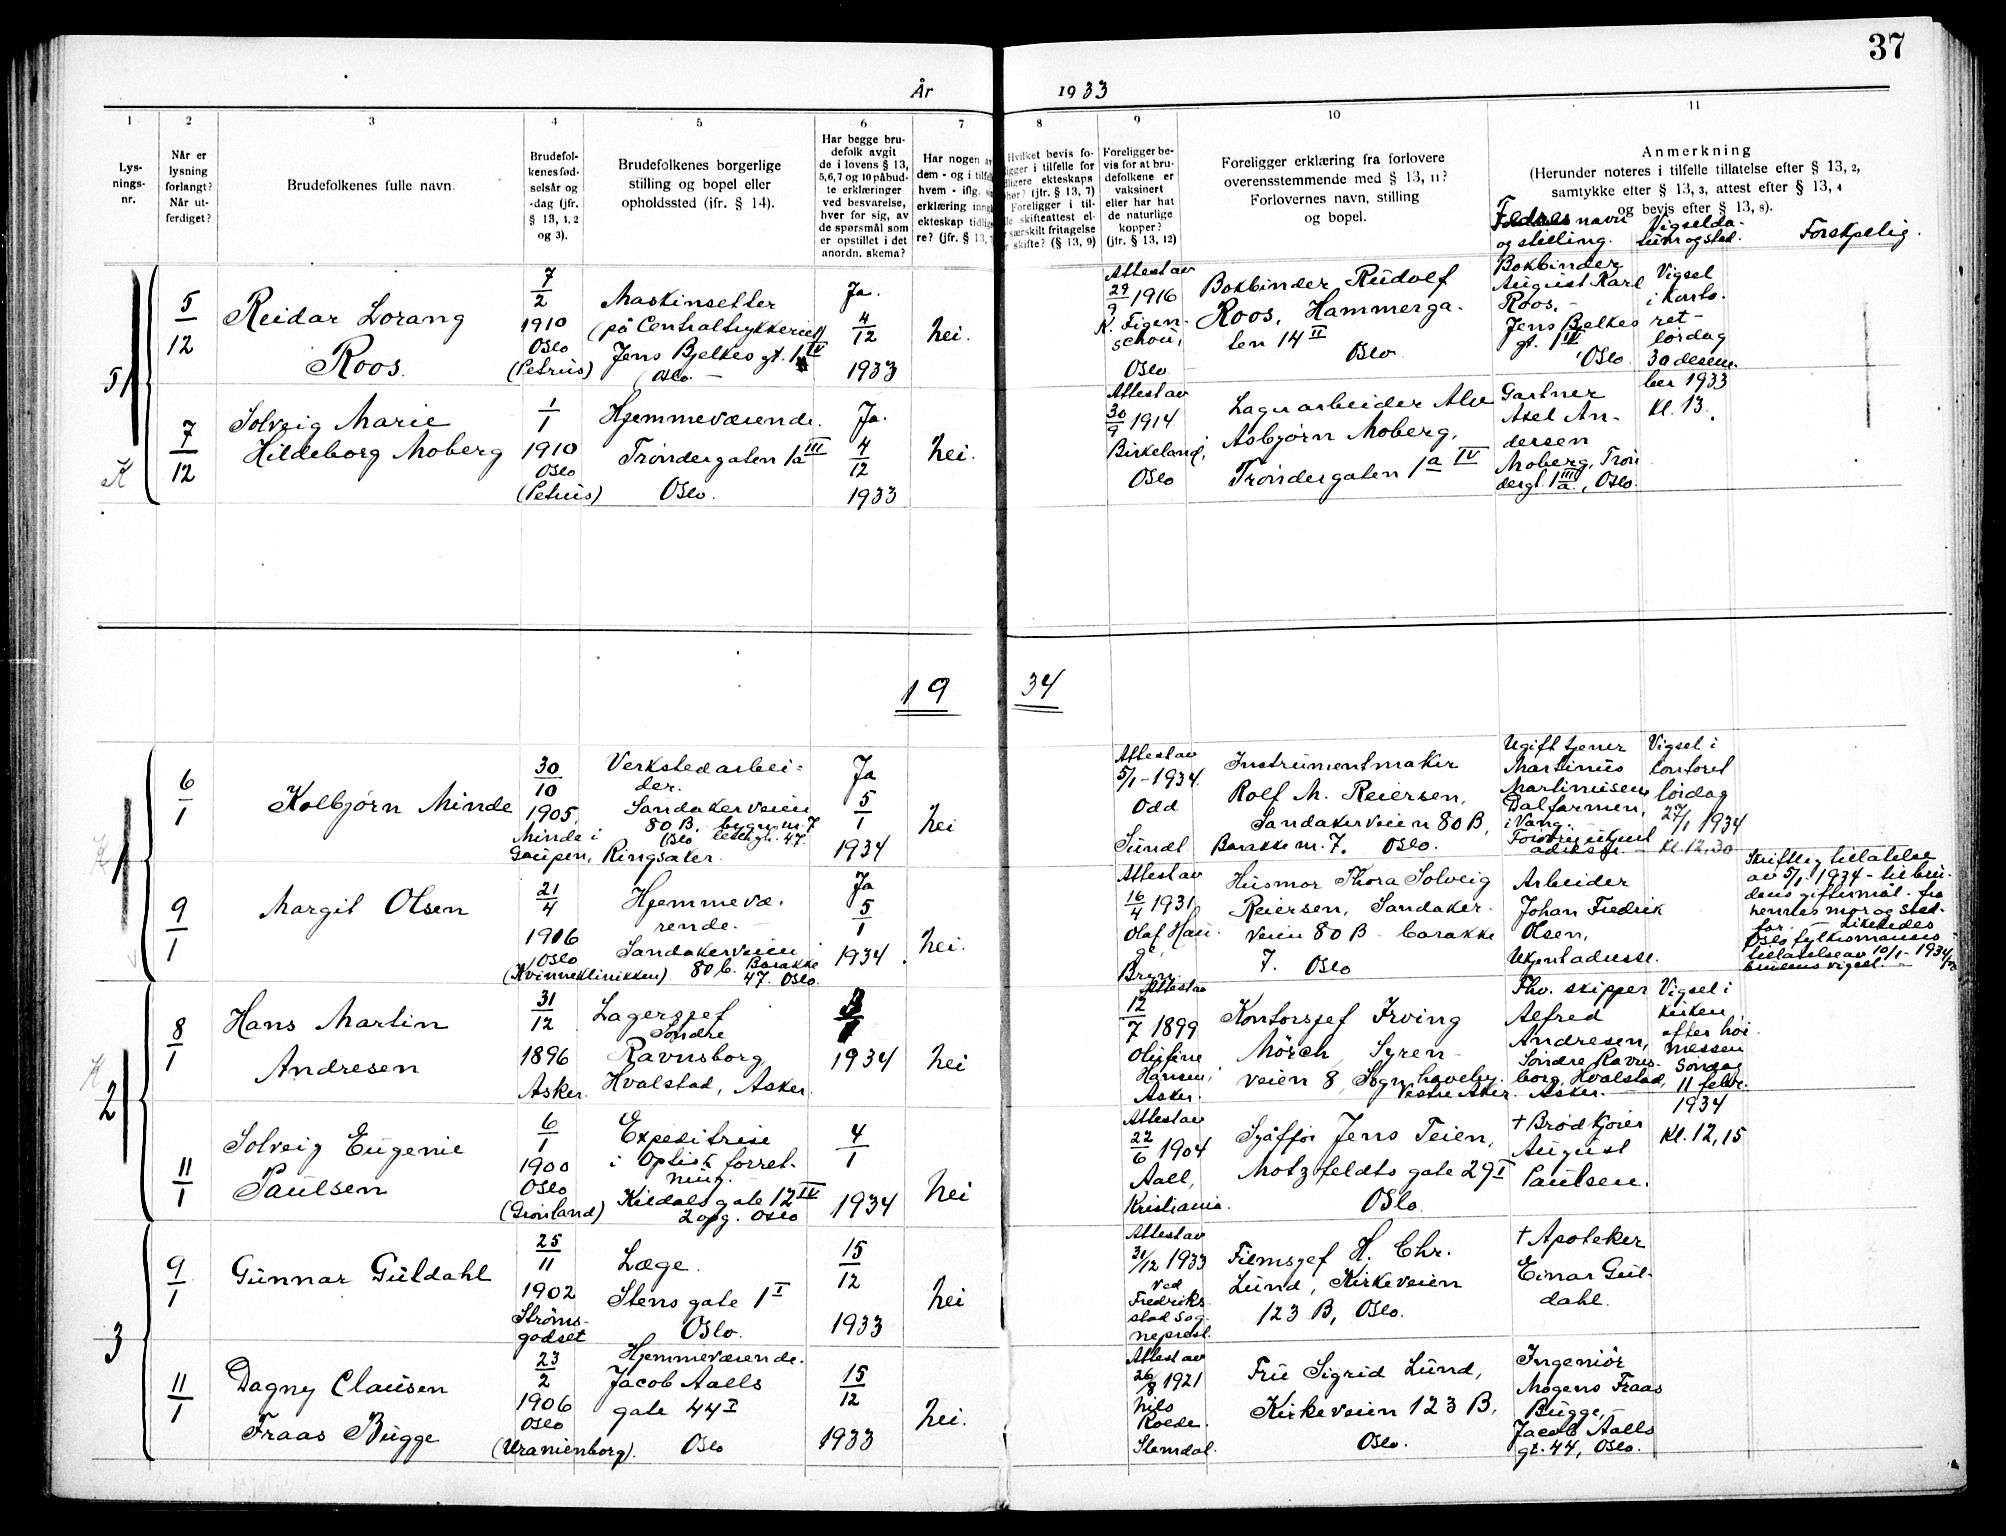 37
År 1933
1
Lys-
nings-
nr.
2
Når er
lysning
forlangt?
Når ut-
ferdiget?
3
Brudefolkenes fulle navn.
4
Brudefol-
kenes fød-
selsår og
-dag (jfr.
§ 13, 1, 2
og 3).
5
Brudefolkenes borgerlige
stilling og bopel eller
opholdssted (ifr. § 14).
6
Har begge bru-
defolk avgit
de i lovens § 13,
5,6,7 og 10 påbud-
te erklæringer
ved besvarelse,
hver for sig, av
de spørsmål som
er opstillet i det
anordn. skema?
7
Har nogen av
dem - og i tilfelle
hvem - iflg.
erklæring inngått
ekteskap tidlige-
re? (jfr. § 13,
8
Hvilket bevis fo-
ligger i tilfelle for
tidligere ekteskaps
ophør? (jfr. § 13, 7)
Foreligger i til-
felle skifteattest el-
særskilt fritagelse
skifte? (§ 13, 9)
9
Foreligger be-
vis for at bru-
defolkene er
vaksinert
eller har hat
de naturlige
kopper?
(jfr. § 13, 12)
10
Foreligger erklæring fra forlovere
overensstemmende med § 13, 11?
Forlovernes navn, stilling
og bopel.
11
Anmerkning
(Herunder noteres i tilfelle tillatelse efter § 13, 2,
samtykke efter § 13, 3, attest efter § 13, 4
og bevis efter § 13, 8).
Fedres navn
og stilling.
Vigselda-
tum og sted.
Forskjelig.
51
K
5/12
Reidar Lorang
Roos.
7/2
1910
Oslo
(Petrus)
Maskinsetter
(på Centraltrykkeriet)
Jens Bjelkes gt. 1 IV
Oslo. -
Ja.
4/12
1933
Nei.
Attest av
29/9 1916
K. Figen-
schou,
Oslo
Bokbinder Rudolf
Roos, Hammerga-
ten 14 II
Oslo.
Bokbinder
August Karl
Roos, -
Jens Bjelkes
gt. 1 IV
Oslo
Vigsel
i kirto-
ret -
lørdag
30 desem
ber 1933
kl. 13.
7/12
Solveig Marie
Hildeborg Moberg
1/1
1910
Oslo
(Petrus)
Hjemmeværende.
Trøndergaten 1a III
Oslo.
Ja.
4/12
1933
Nei.
Attest av
30/9 1914
Birkeland,
Oslo
Lagerarbeider Alv
Asbjørn Moberg,
Trøndergaten 1a IV
Gartner
Axel An-
dersen
Moberg, Trøn
dergt. 1a III, Oslo.
19 34
1
6/1
Kolbjørn Minde
30/10
1905.
Minde i
Gaupen, Ringsaker.
Verkstedarbei-
der.
Sandakerveien
80 B. bygn m. 7
Oslo
Ja
5/1
1934
Nei
Attest av
5/1 - 1934
Odd
Sundt
Instrumentmaker
Rolf M. Reiersen,
Sandakerveien 80 B,
Barakke nr. 7. Oslo.
Ugift tjener
Martinus
Martinusen
Dalfarmen,
i Vang. -
Vigsel i
kontoret
lørdag
27/1 1934
Kl. 12,30
9/1
Margit Olsen
21/4
1916
Oslo
(Kvinneklinikken)
Hjemmevæ-
rende. -
Sandakerveien
80 b. Barakke
47. Oslo.
Ja
5/1
1934
Nei.
Attest av
16/4 1931
Olaf Hau
ge,
Bryn.
Husmor Thora Solveig
Reiersen, Sandaker-
veien 80 B - barakke
7. Oslo
Arbeider
Johan Fredrik
Olsen,
Ukjent adresse.
Skriftlig tillatelse
av 5/1 1934 - til bru-
dens giftermål - fra
hennes mor og sted-
far. - Likeledes
Oslo fylkesmanns
tillatelse av 10/1 - 1934
brudens vigsel. -
K
2
8/1
Hans Martin
Andresen
31/12
1896
Asker.
Lagersjef
Søndre
Ravnsborg
Hvalstad, Asker.
1934
Nei
Attest av
12/7 1899
Olufine
Hansen,
Asker.
Kontorsjef Irving
Mörch, Syren-
veien 8, Sogn haveby.
Vestre Aker.
Fhv. skipper
Alfred
Andresen,
Søndre Ravns-
borg, Hvalstad,
Asker.
Vigsel i
kirken
efter høi-
messen
Søndag
11 febr.
1934
Kl. 12,15
11/1
Solveig Eugenie
Paulsen
6/1
1900
Oslo
(Grønland)
Expeditrise
i Optisk forret-
ning.
Kildals gate 12 IV
2 opg. Oslo
4/1
1934
Nei
Attest av
22/6 1904
Aall,
Kristiania.
Sjåffør Jens Teien,
Motzfeldts gate 29 I
Oslo.
+ Brødkjører
August
Paulsen.
3
9/1
Gunnar Guldahl
25/11
1902
Strøms-
godset
Læge.
Stens gate 1 I
Oslo.
15/12
1933
Nei
Attest av
31/12 1933
ved
Fredriks-
stad Sog-
neprest.
Filmsjef H. Chr.
Lund, Kirkeveien
123 B, Oslo.
+ Apoteker
Einar Gul-
dahl.
11/1
Dagny Clausen
Fraas Bugge
23/2
1906
Oslo
(Uranienborg).
Hjemmeværende.
Jacob Aalls
gate 44 I
Oslo
15/12
1933
Nei.
Attest av
26/8 1921
Nils
Roede.
Slemdal.
Fru Sigrid Lund,
Kirkeveien 123 B,
Oslo.
Ingeniör
Mogens Fraas
Bugge, -
Jacob Aalls
gt. 44, Oslo.